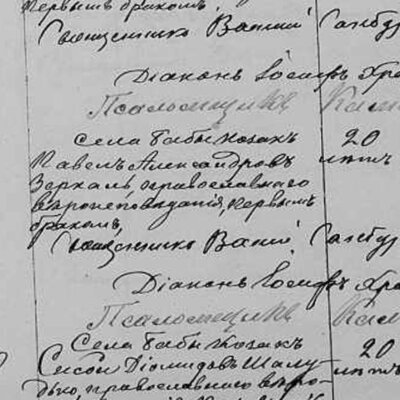 первымъ бракомъ.
Священникъ Василій
Діаконъ Іосифъ
Псаломщикъ
Села Бабы козакъ 20
Павелъ Александровъ лѣтъ
Зеркаль, православнаго
вѣроисповѣданія, первымъ
бракомъ,
Священникъ Василій
Діаконъ Іосифъ
Псаломщикъ
Села Бабы козакъ 20
Сисой Діомидовъ Шалу- лѣтъ
дько, православнаго вѣро-